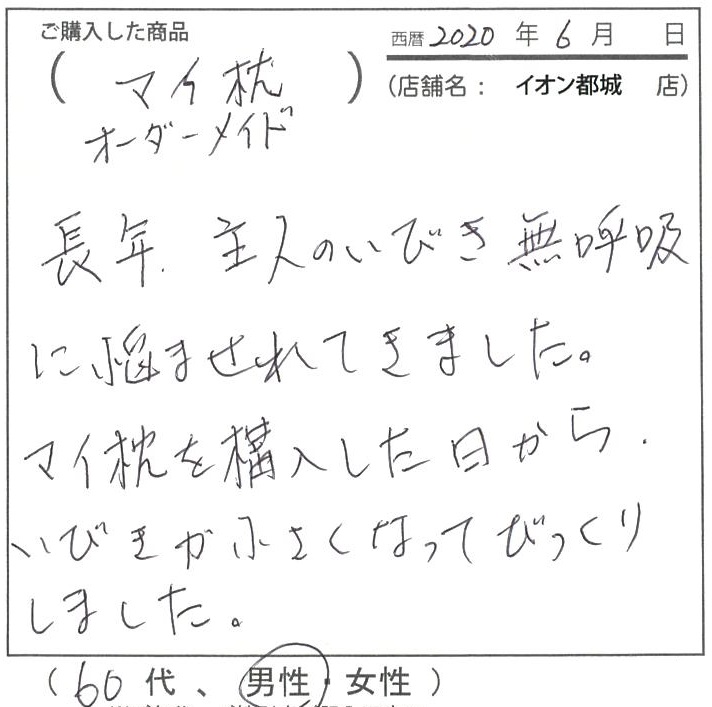 ご購入した商品
西暦 2020 年 6 月 日
( マイ枕 )
(店舗名： イオン都城 店)
オーダーメイド
長年、主人のいびき無呼吸
に悩ませれてきました。
マイ枕を購入した日から、
いびきが小さくなってびっくり
しました。
( 60 代、男性・女性 )